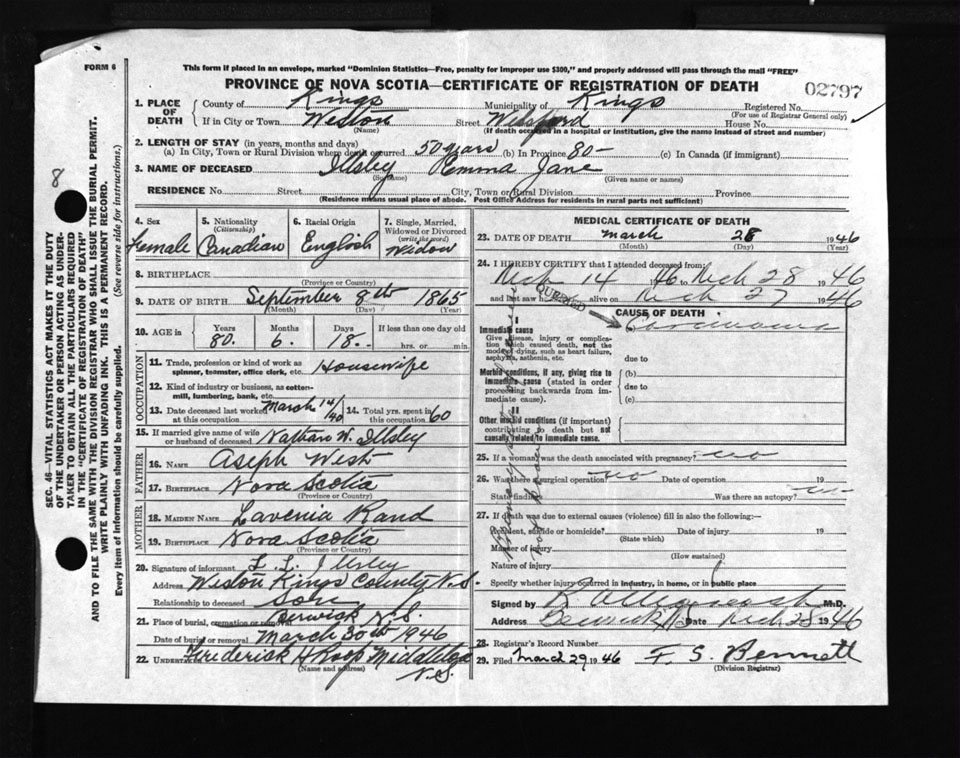 FORM 6
This form if placed in an envelope, marked "Dominion Statistics—Free, penalty for improper use $300," and properly addressed will pass through the mail "FREE"
PROVINCE OF NOVA SCOTIA—CERTIFICATE OF REGISTRATION OF DEATH
02797
1. PLACE OF DEATH
County of Kings Municipality of Kings Registered No.
(For use of Registrar General only)
If in City or Town Weston Street House No.
(Name) (If death occurred in a hospital or institution, give the name instead of street and number)
2. LENGTH OF STAY (in years, months and days)
(a) In City, Town or Rural Division where death occurred 50 years (b) In Province 80- (c) In Canada (if immigrant)
3. NAME OF DECEASED Illsley Emma Jane
(Surname) (Given name or names)
RESIDENCE No. Street City, Town or Rural Division Province
(Residence means usual place of abode. Post Office Address for residents in rural parts not sufficient)
8
SEC. 46—VITAL STATISTICS ACT MAKES IT THE DUTY
OF THE UNDERTAKER OR PERSON ACTING AS UNDER-
TAKER TO OBTAIN ALL THE PARTICULARS REQUIRED
IN THE "CERTIFICATE OF REGISTRATION OF DEATH"
AND TO FILE THE SAME WITH THE DIVISION REGISTRAR WHO SHALL ISSUE THE BURIAL PERMIT.
WRITE PLAINLY WITH UNFADING INK. THIS IS A PERMANENT RECORD.
Every item of information should be carefully supplied. (See reverse side for instructions.)
4. Sex 5. Nationality (Citizenship) 6. Racial Origin 7. Single, Married, Widowed or Divorced (write the word)
Female Canadian English Widow
8. BIRTHPLACE
(Province or Country)
9. DATE OF BIRTH September 8th 1865
(Month) (Day) (Year)
10. AGE in Years Months Days If less than one day old
80. 6. 18- hrs. or min.
OCCUPATION
11. Trade, profession or kind of work as spinner, teamster, office clerk, etc. Housewife
12. Kind of industry or business, as cotton-mill, lumbering, bank, etc.
13. Date deceased last worked at this occupation March 14/46 14. Total yrs. spent in this occupation 60
15. If married give name of wife or husband of deceased Nathan W. Illsley
FATHER
16. NAME Aseph West
17. BIRTHPLACE Nova Scotia
(Province or Country)
MOTHER
18. MAIDEN NAME Lavenia Rand
19. BIRTHPLACE Nova Scotia
(Province or Country)
20. Signature of informant L. L. Illsley
Address Weston Kings County N.S.
Relationship to deceased Son
21. Place of burial, cremation or removal Berwick N.S.
Date of burial or removal March 30th 1946
22. Undertaker Frederick H Roop Middleton
(Name and address) N.S.
MEDICAL CERTIFICATE OF DEATH
23. DATE OF DEATH March 28 1946
(Month) (Day) (Year)
24. I HEREBY CERTIFY that I attended deceased from
Mch 14 46 to Mch 28 1946
and last saw h alive on Mch 27 1946
QUERIED
CAUSE OF DEATH
I
Immediate cause (a) Carcinoma
Give disease, injury or complication which caused death, not the mode of dying, such as heart failure, asphyxia, asthenia, etc. due to
Morbid conditions, if any, giving rise to immediate cause (stated in order proceeding backwards from immediate cause). (b)
due to
(c)
II
Other morbid conditions (if important) contributing to death but not causally related to immediate cause.
25. If a woman was the death associated with pregnancy? no
26. Was there a surgical operation no Date of operation 19
State finding Was there an autopsy? no
27. If death was due to external causes (violence) fill in also the following:—
Accident, suicide or homicide? Date of injury 19
(State which)
Manner of injury
(How sustained)
Nature of injury
Specify whether injury occurred in industry, in home, or in public place
Signed by M.D.
Address Berwick NS Mch 28 1946
28. Registrar's Record Number
29. Filed March 29 1946 F. S. Bennett
(Division Registrar)